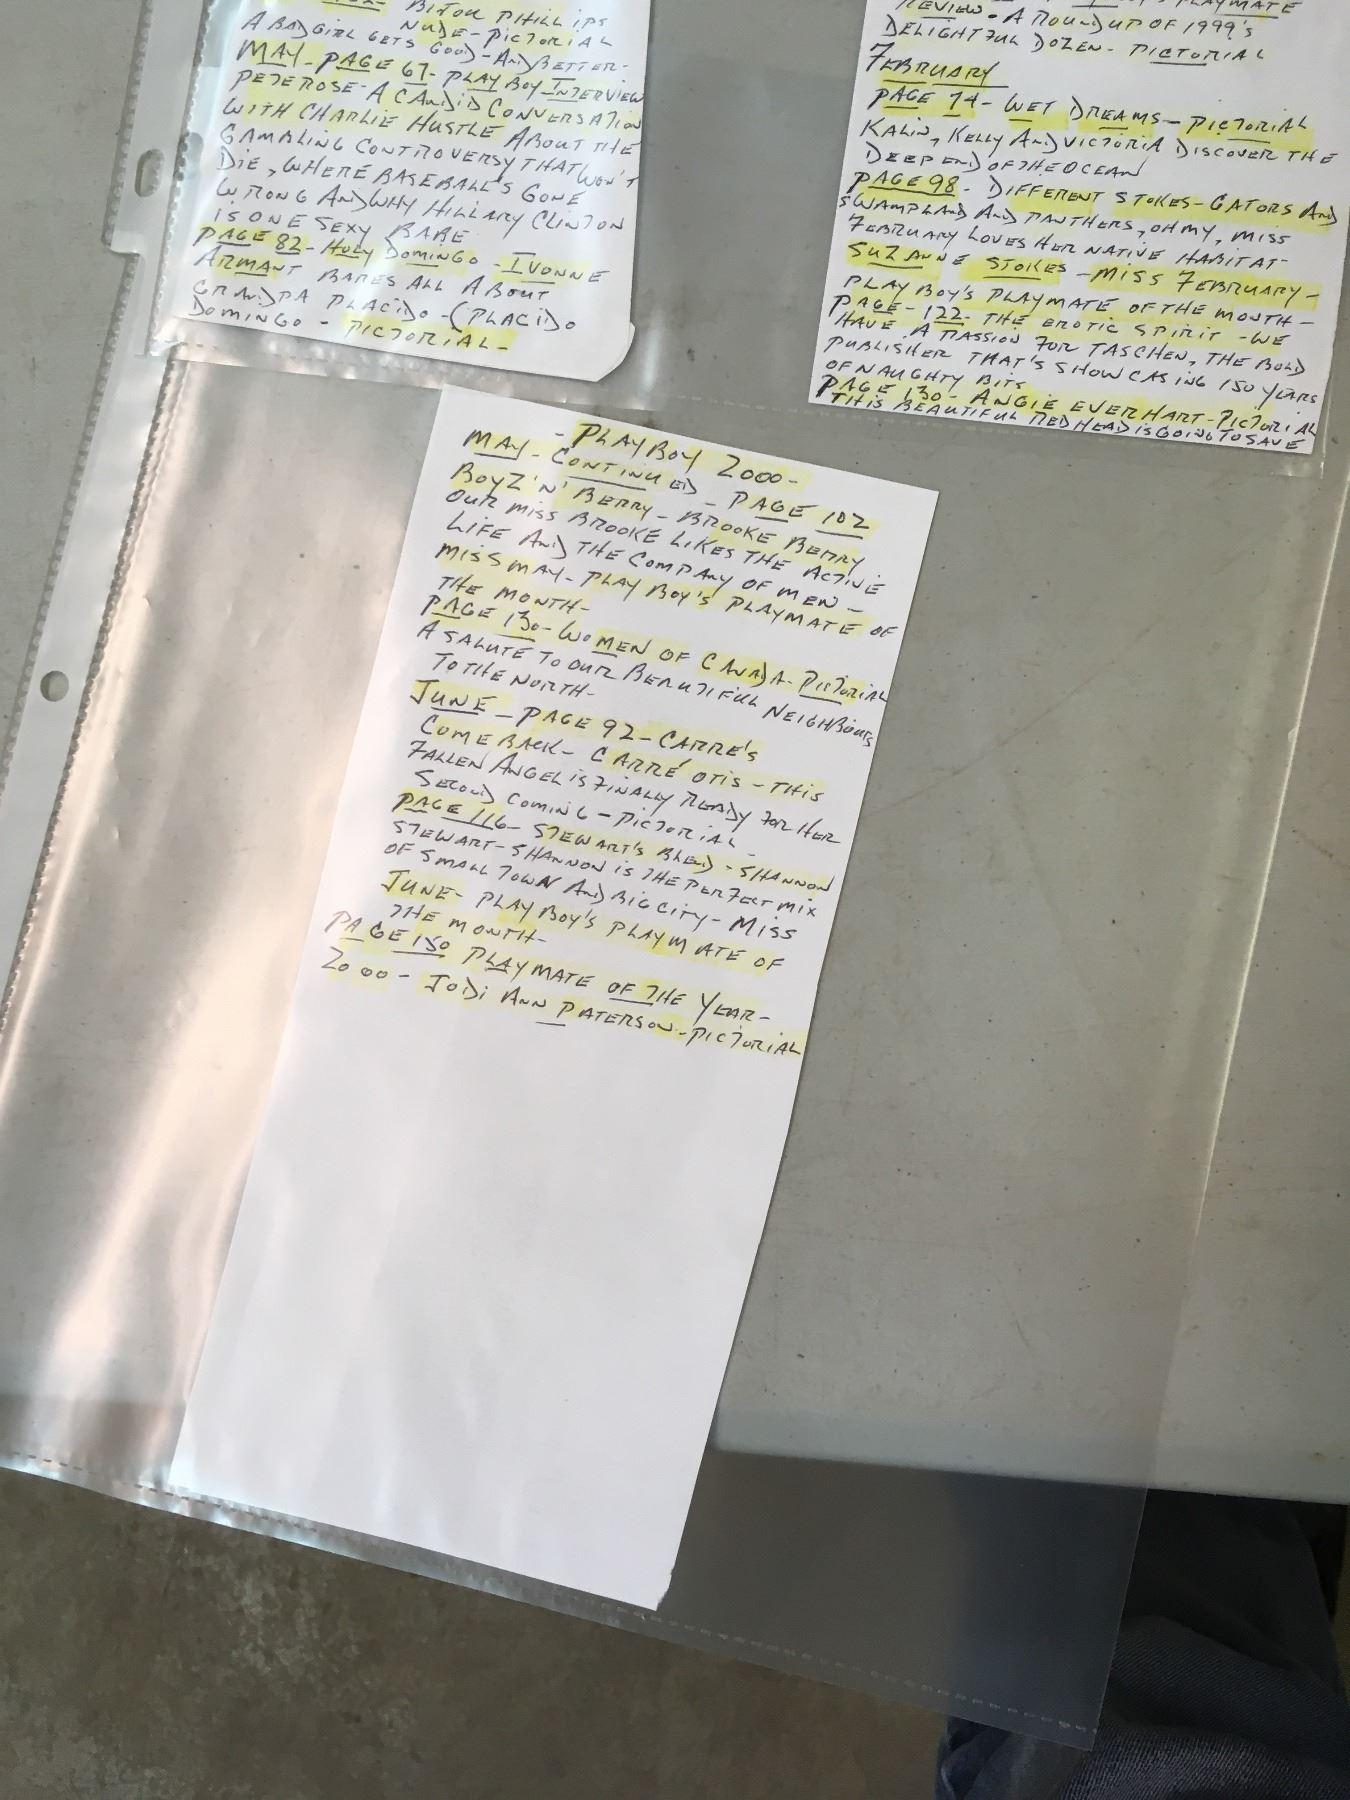 BIJOU PHILLIPS
NUDE - PICTORIAL
A BAD GIRL GETS GOOD - AND BETTER -
MAY - PAGE 67 - PLAYBOY INTERVIEW
PETE ROSE - A CANDID CONVERSATION
WITH CHARLIE HUSTLE ABOUT THE
GAMBLING CONTROVERSY THAT WON'T
DIE, WHERE BASEBALL'S GONE
WRONG AND WHY HILLARY CLINTON
IS ONE SEXY BABE
PAGE 82 - HOLY DOMINGO - IVONNE
ARMANT BARES ALL ABOUT
GRANDPA PLACIDO - (PLACIDO
DOMINGO - PICTORIAL -
PLAYMATE
REVIEW - A ROUNDUP OF 1999'S
DELIGHTFUL DOZEN - PICTORIAL
FEBRUARY
PAGE 74 - WET DREAMS - PICTORIAL
KALIN, KELLY AND VICTORIA DISCOVER THE
DEEP END OF THE OCEAN
PAGE 98 - DIFFERENT STOKES - GATORS AND
SWAMPLAND AND PANTHERS, OH MY, MISS
FEBRUARY LOVES HER NATIVE HABITAT -
SUZANNE STOKES - MISS FEBRUARY -
PLAYBOY'S PLAYMATE OF THE MONTH -
PAGE - 122 - THE EROTIC SPIRIT - WE
HAVE A PASSION FOR TASCHEN, THE BOLD
PUBLISHER THAT'S SHOWCASING 150 YEARS
OF NAUGHTY BITS
PAGE 130 - ANGIE EVERHART - PICTORIAL
THIS BEAUTIFUL REDHEAD IS GOING TO SAVE
- PLAYBOY 2000 -
MAY - CONTINUED - PAGE 102
BOYZ 'N' BERRY - BROOKE BERRY
OUR MISS BROOKE LIKES THE ACTIVE
LIFE AND THE COMPANY OF MEN -
MISS MAY - PLAYBOY'S PLAYMATE OF
THE MONTH -
PAGE 130 - WOMEN OF CANADA - PICTORIAL
A SALUTE TO OUR BEAUTIFUL NEIGHBOURS
TO THE NORTH -
JUNE - PAGE 92 - CARRE'S
COMEBACK - CARRÉ OTIS - THIS
FALLEN ANGEL IS FINALLY READY FOR HER
SECOND COMING - PICTORIAL -
PAGE 116 - STEWART'S BLEND - SHANNON
STEWART - SHANNON IS THE PERFECT MIX
OF SMALL TOWN AND BIG CITY - MISS
JUNE - PLAYBOY'S PLAYMATE OF
THE MONTH -
PAGE 150 PLAYMATE OF THE YEAR -
2000 - JODI ANN PATERSON - PICTORIAL